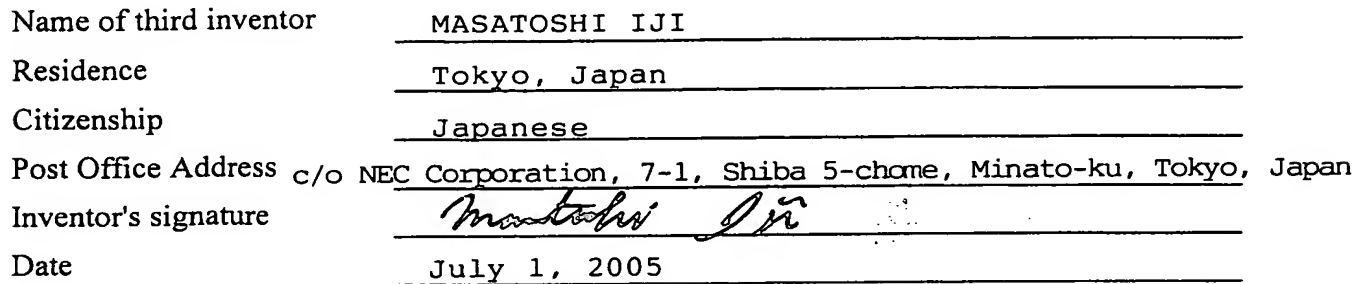 Name of third inventor MASATOSHI IJI
Residence Tokyo, Japan
Citizenship Japanese
Post Office Address c/o NEC Corporation, 7-1, Shiba 5-chome, Minato-ku, Tokyo, Japan
Inventor's signature Masatoshi Iji
Date July 1, 2005